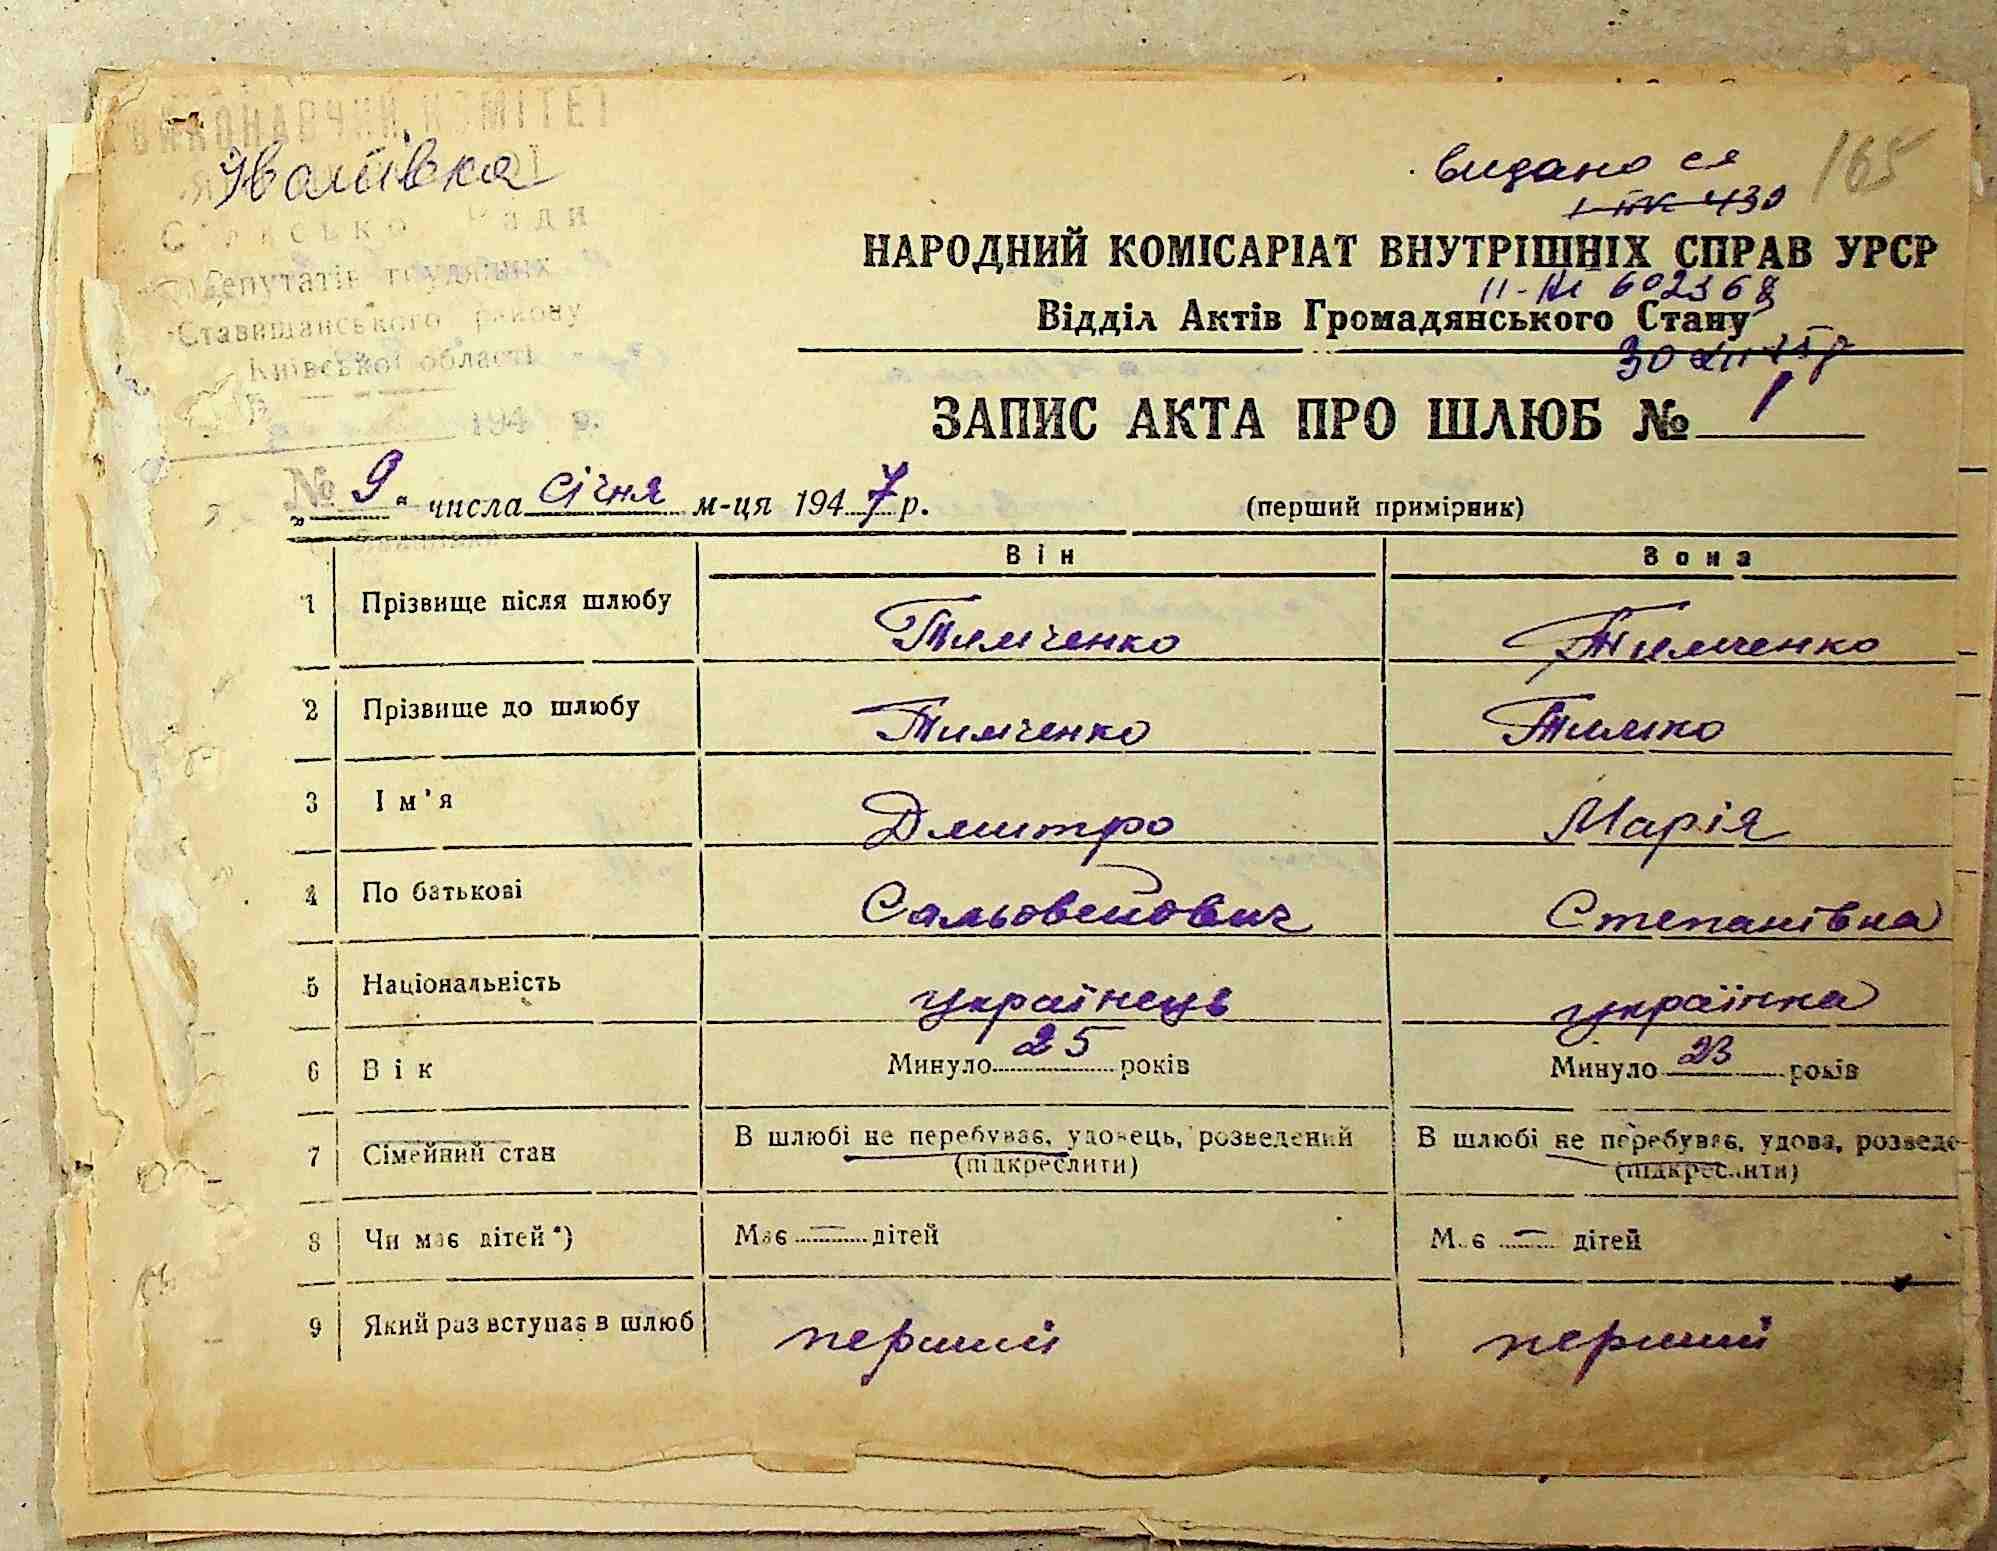 ВИКОНАВЧИЙ КОМІТЕТ
Іванівка
Сільсько Ради
Депутатів трудящих
Ставищанського району
Київської області
194 р.
№
видано ся
165
НАРОДНИЙ КОМІСАРІАТ ВНУТРІШНІХ СПРАВ УРСР
602368
Відділ Актів Громадянського Стану
30 XII
ЗАПИС АКТА ПРО ШЛЮБ № 1
„ 9 “ числа січня м-ця 1947 р. (перший примірник)
Він Вона
1 Прізвище після шлюбу Тимченко Тимченко
2 Прізвище до шлюбу Тимченко Тимко
3 Ім'я Дмитро Марія
4 По батькові Сальовейович Степанівна
5 Національність українець українка
6 Вік Минуло 25 років Минуло 23 років
7 Сімейний стан В шлюбі не перебував, удовець, розведений В шлюбі не перебуває, удова, розведе-
(підкреслити) (підкреслити)
8 Чи має дітей*) Має — дітей Має — дітей
9 Який раз вступає в шлюб перший перший